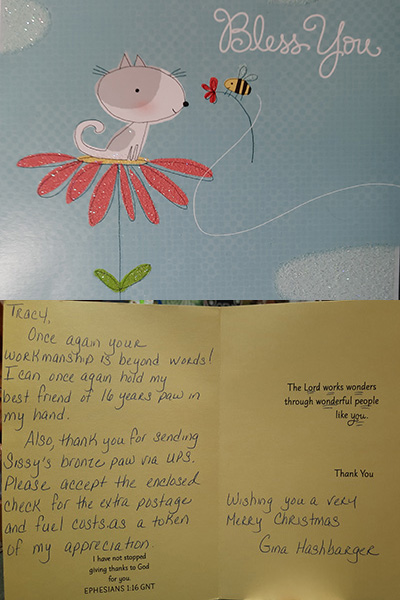 Bless You
Tracy,
Once again your
workmanship is beyond words!
I can once again hold my
best friend of 16 years paw in
my hand.
Also, thank you for sending
Sissy's bronze paw via UPS.
Please accept the enclosed
check for the extra postage
and fuel costs.as a token
of my appreciation.
I have not stopped
giving thanks to God
for you.
EPHESIANS 1:16 GNT
The Lord works wonders
through wonderful people
like you.
Thank You
Wishing you a very
Merry Christmas
Gina Hashbarger